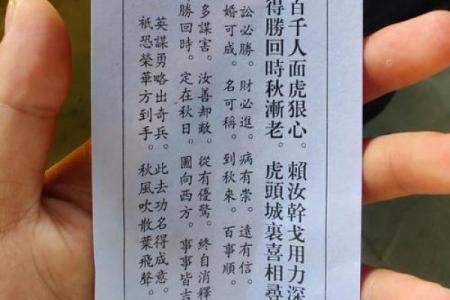 百千人面虎狠心。賴汝幹戈用力深
得勝回時秋漸老。虎頭城裏喜相尋
訟必勝。財必進。病有祟。遠有信。
婚可成。名可稱。到秋來。百事順。
多謀害。汝善却敵。從有優驚。終自消釋
勝回時。定在秋日。圖向西方。事事皆吉
英謀勇略出奇兵。此去功名得成意。
祇恐榮華方到手。秋風吹散葉飛聲。